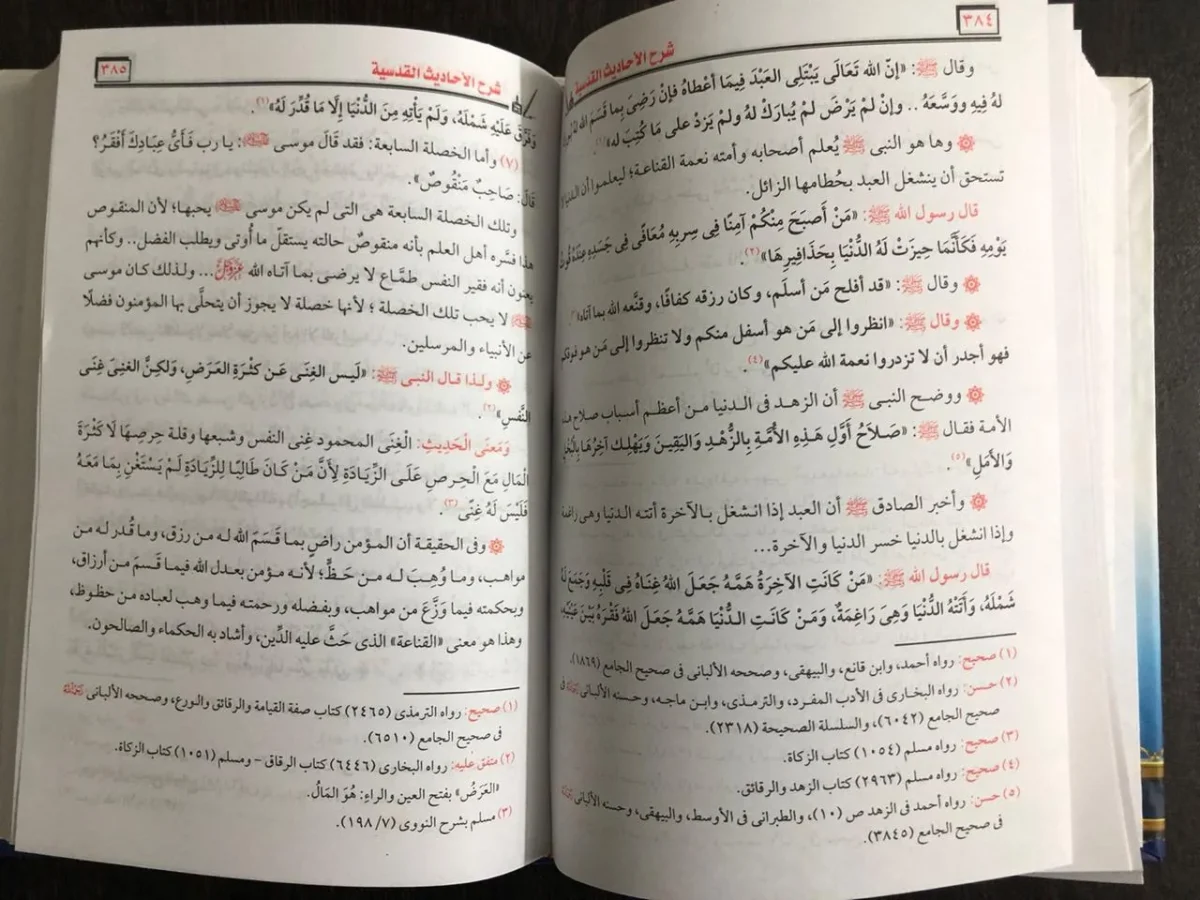 ٣٨٤
شرح الأحاديث القدسية
وقال ﷺ: «إنّ الله تَعَالَى يَبْتَلِى العَبْدَ فِيمَا أعْطاهُ فإنْ رَضِىَ بِما قَسَمَ الله لهُ
لهُ فِيهِ ووَسَّعَهُ .. وإنْ لمْ يَرْضَ لمْ يُبارَكْ لهُ ولمْ يَزِدْ على مَا كُتِبَ له»(١).
۞ وها هو النبى ﷺ يُعلم أصحابه وأمته نعمة القناعة؛ ليعلموا أن الدنيا لا
تستحق أن ينشغل العبد بحُطامها الزائل.
قال رسول الله ﷺ: «مَنْ أَصبَحَ مِنْكُمْ آمِنًا فِى سِربِهِ مُعَافًى فِى جَسَدِهِ عِنْدَهُ قُوتُ
يَوْمِهِ فَكَأَنَّمَا حِيزَتْ لَهُ الدُّنْيَا بِحَذَافِيرِهَا»(٢).
۞ وقال ﷺ: «قد أفلح مَن أسلَم، وكان رزقه كفافًا، وقنَّعه الله بما آتاه»
۞ وقال ﷺ: «انظروا إلى مَن هو أسفل منكم ولا تنظروا إلى مَن هو فوقكم
فهو أجدر أن لا تزدروا نعمة الله عليكم»(٤).
۞ ووضح النبى ﷺ أن الزهد فى الدنيا من أعظم أسباب صلاح هذه
الأمة فقال ﷺ: «صَلَاحُ أَوَّلِ هَذِهِ الأُمَّةِ بِالزُّهْدِ وَاليَقِينَ وَيَهْلِك آخِرُهَا بِالْبُخْلِ
وَالأَمَلِ»(٥).
۞ وأخبر الصادق ﷺ أن العبد إذا انشغل بالآخرة أتته الدنيا وهى راغمة
وإذا انشغل بالدنيا خسر الدنيا والآخرة...
قال رسول الله ﷺ: «مَنْ كَانَتِ الآخِرَةُ هَمَّهُ جَعَلَ اللهُ غِنَاهُ فِى قَلْبِهِ وَجَمَعَ لَهُ
شَمْلَهُ، وَأَتَتْهُ الدُّنْيَا وَهِىَ رَاغِمَةٌ، وَمَنْ كَانَتِ الدُّنْيَا هَمَّهُ جَعَلَ اللهُ فَقْرَهُ بَيْنَ عَيْنَيْهِ
(١) صحيح: رواه أحمد، وابن قانع، والبيهقى، وصححه الألبانى فى صحيح الجامع (١٨٦٩).
(٢) حسن: رواه البخارى فى الأدب المفرد، والترمذى، وابن ماجه، وحسنه الألبانى رحمه الله فى
صحيح الجامع (٦٠٤٢)، والسلسلة الصحيحة (٢٣١٨).
(٣) صحيح: رواه مسلم (١٠٥٤) كتاب الزكاة.
(٤) صحيح: رواه مسلم (٢٩٦٣) كتاب الزهد والرقائق.
(٥) حسن: رواه أحمد فى الزهد ص (١٠)، والطبرانى فى الأوسط، والبيهقى، وحسنه الألبانى رحمه الله
فى صحيح الجامع (٣٨٤٥).
٣٨٥
شرح الأحاديث القدسية
وَفَرَّقَ عَلَيْهِ شَمْلَهُ، وَلَمْ يَأْتِهِ مِنَ الدُّنْيَا إِلَّا مَا قُدِّرَ لَهُ»(١).
(٧) وأما الخصلة السابعة: فقد قَالَ موسى عليه السلام: يا رب فَأَىُّ عِبَادِكَ أَفْقَرُ؟
قَالَ: صَاحِبٌ مَنْقُوصٌ».
وتلك الخصلة السابعة هى التى لم يكن موسى عليه السلام يحبها؛ لأن المنقوص
هذا فسَّره أهل العلم بأنه منقوصٌ حالته يستقلّ ما أُوتى ويطلب الفضل.. وكأنهم
يعنون أنه فقير النفس طمَّاع لا يرضى بما آتاه الله عز وجل... ولذلك كان موسى
عليه السلام لا يحب تلك الخصلة ؛ لأنها خصلة لا يجوز أن يتحلَّى بها المؤمنون فضلًا
عن الأنبياء والمرسلين.
۞ ولذا قال النبى ﷺ: «لَيس الغِنَى عَن كثْرةِ العَرَضِ، وَلكِنَّ الغنِىَ غِنَى
النَّفسِ»(٢).
وَمَعنَى الْحَدِيثِ: الْغِنَى المحمود غِنى النفس وشبعها وقلة حِرصِهَا لَا كَثْرَةَ
الْمَالِ مَعَ الْحِرصِ عَلَى الزِّيَادَةِ لِأَنَّ مَنْ كَانَ طَالِبًا لِلزِّيَادَةِ لَمْ يَسْتَغْنِ بِمَا مَعَهُ
فَلَيْسَ لَهُ غِنًى(٣).
۞ وفى الحقيقة أن المؤمن راضٍ بما قَسَمَ الله له من رزق، وما قُدر له من
مواهب، وما وُهِبَ له من حَظٍّ؛ لأنه مؤمن بعدل الله فيما قَسَمَ من أرزاق،
وبحكمته فيما وَزَّعَ من مواهب، وبفضله ورحمته فيما وهب لعباده من حظوظ،
وهذا هو معنى «القناعة» الذى حَثَّ عليه الدِّين، وأشاد به الحكماء والصالحون.
(١) صحيح: رواه الترمذى (٢٤٦٥) كتاب صفة القيامة والرقائق والورع، وصححه الألبانى رحمه الله
فى صحيح الجامع (٦٥١٠).
(٢) متفق عليه: رواه البخارى (٦٤٤٦) كتاب الرقاق - ومسلم (١٠٥١) كتاب الزكاة.
«العَرَضُ» بفتح العين والراءِ: هُوَ المَالُ.
(٣) مسلم بشرح النووى (٧/ ١٩٨).